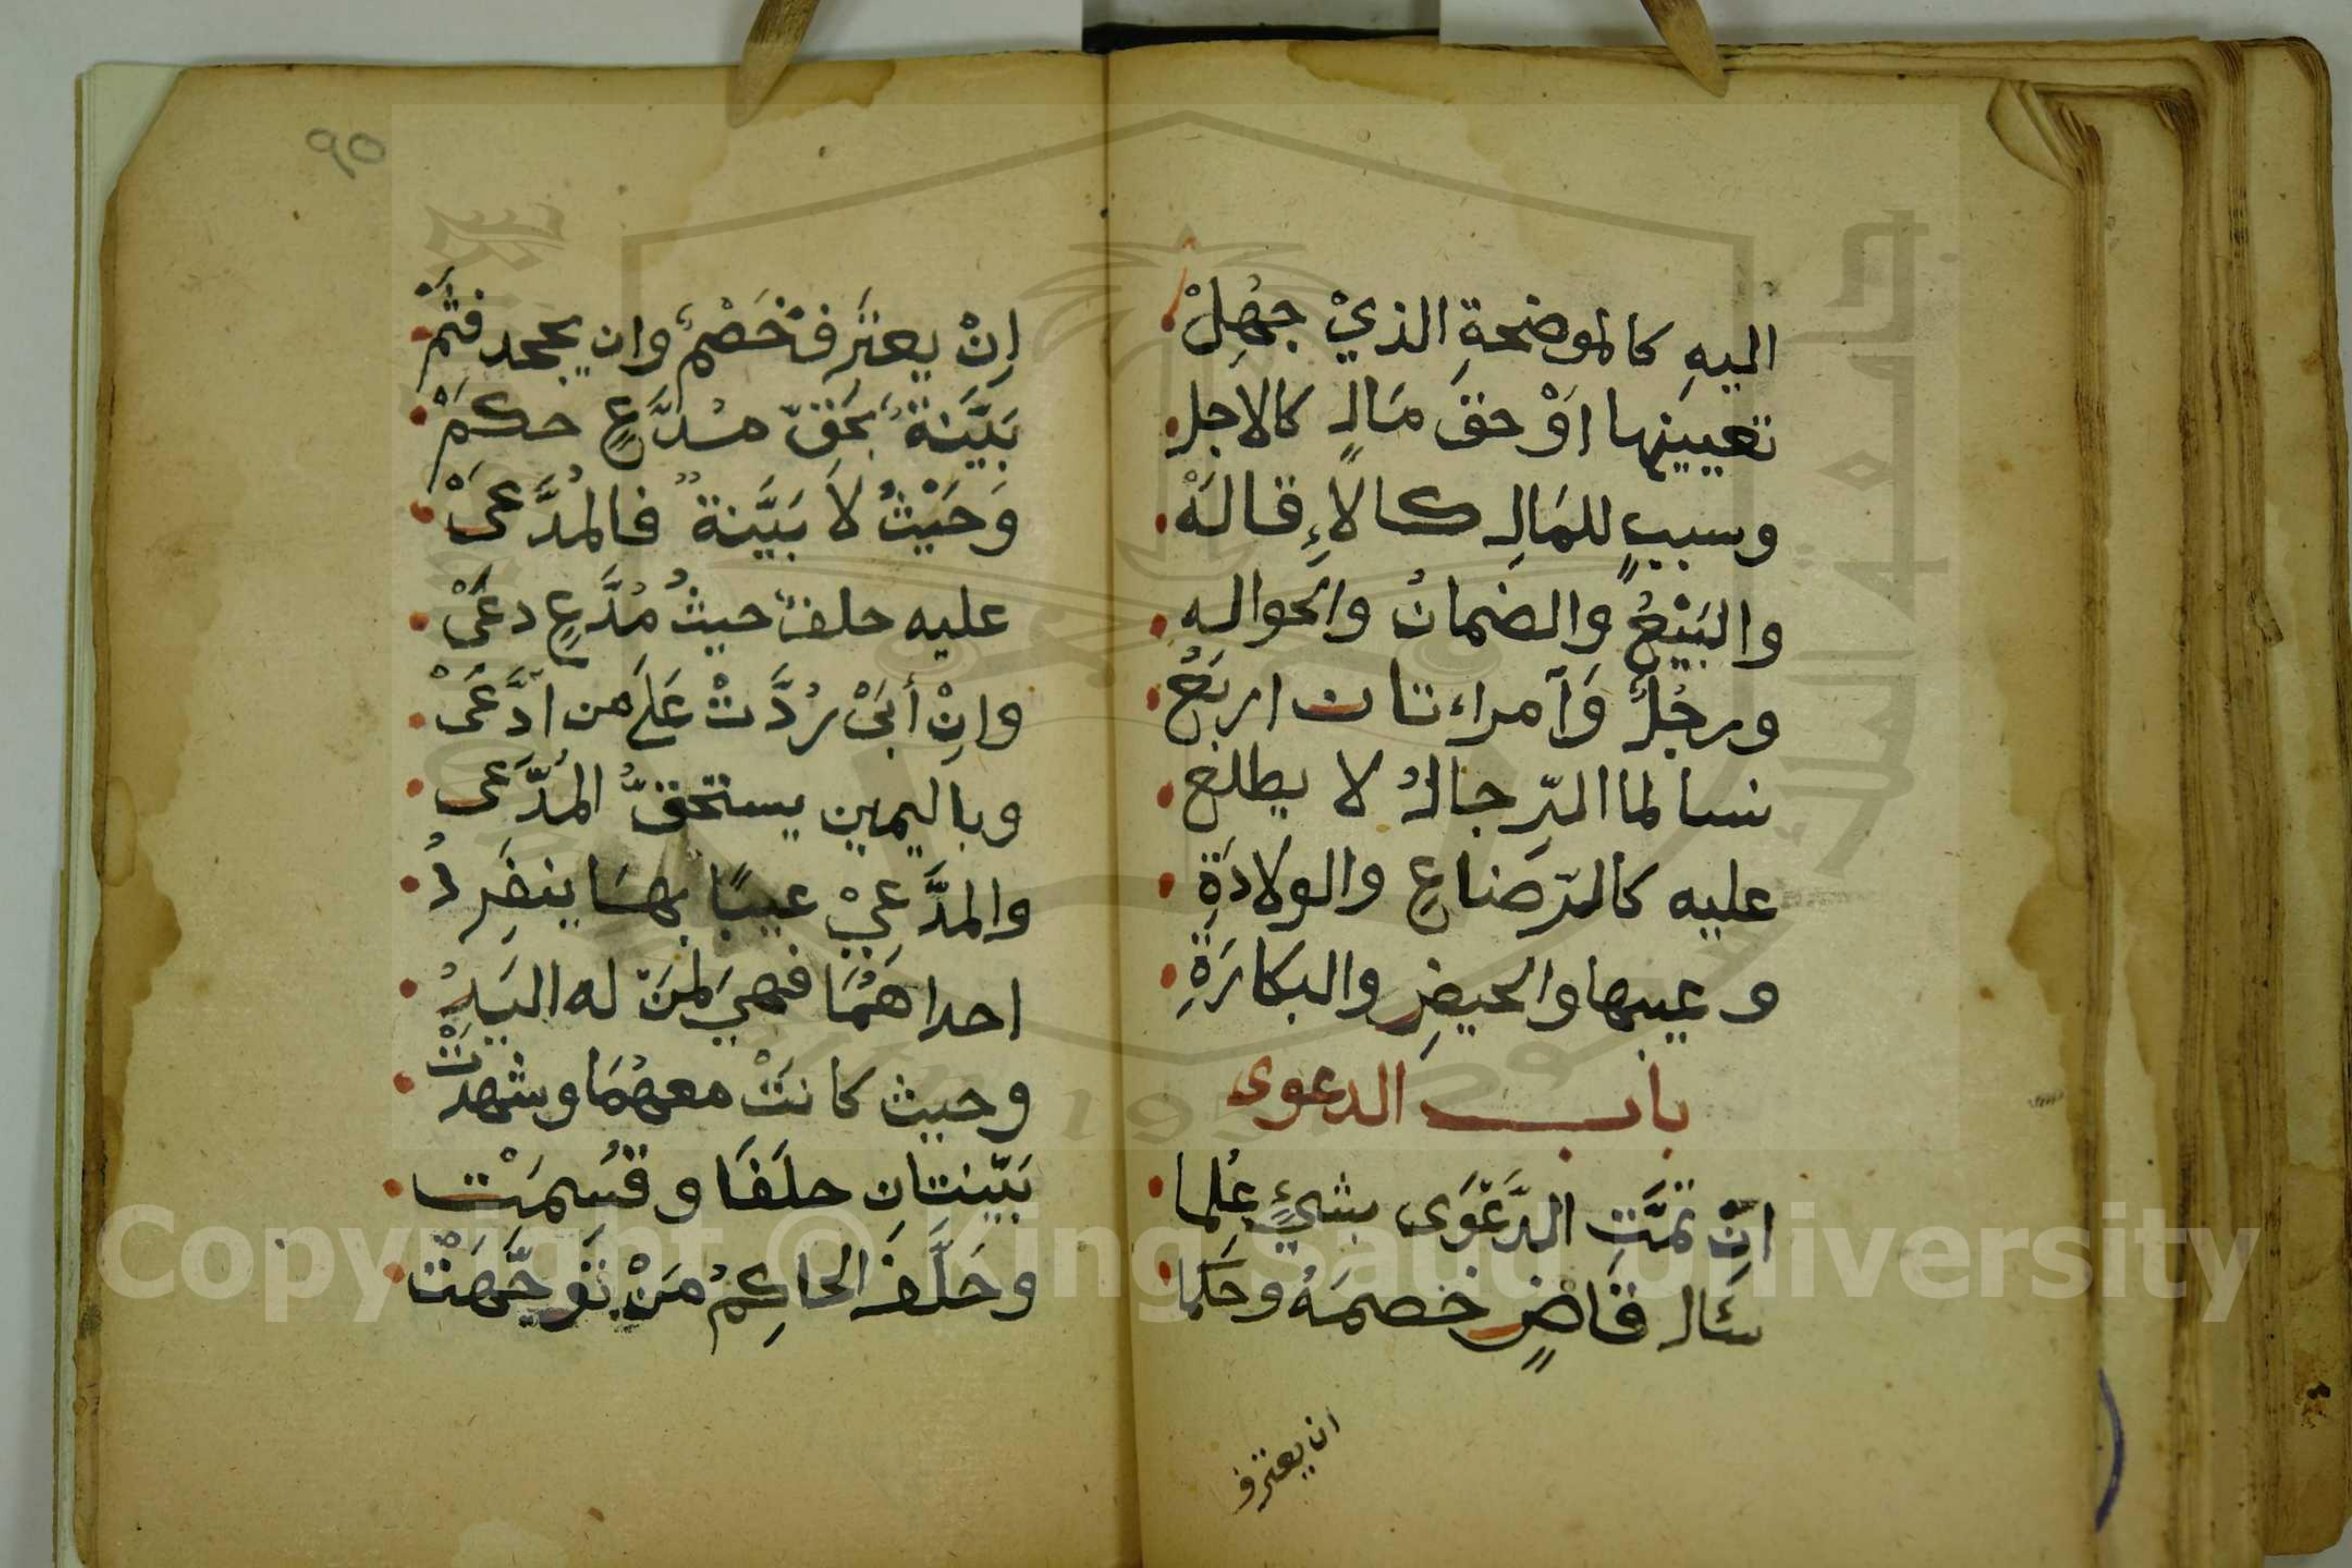 اليهِ كالموضحةِ الذيْ جهُلْ
تعيينها اوْ حق مَالٍ كالاجل
وسببٍ للمَالِ كالاءِقالَهْ
والبَيْعُ والضمانُ والحواله
ورجُلٌ وَآمراءتان اربَعُ
نسا لما الرّجالُ لا يطلعُ
عليه كالرّضاعِ والولادَةِ
وعيبها والحيضِ والبكارَةِ
باب الدعوى
انْ تمَّتِ الدَّعْوَى بشيءٍ عُلِما
سَئال قَاضٍ خصمَهُ وحَكما
ان يعترف
٩٥
اِنْ يعترَف خَصْمٌ وان يجحد فثَمْ
بَيّنَةٌ بحَقّ مُدَّعٍ حكَمْ
وَحَيْثُ لاَ بَيَّنةٌ فالمُدَّعَىْ
عليه حلفٌ حيثُ مُدَّعٍ دعَىْ
وانْ أبَىْ رُدَّتْ عَلَى من ادَّعَىْ
وباليمين يستحقُّ المُدَّعى
والمدَّعِيْ عيبًا بهَا ينفَرِدُ
احداهُمَا فهي لمَن له اليَدُ
وحيث كانَتْ معهُمَا وشهدَتْ
بَيّنتانِ حلَفَا وقسُمَتْ
وحَلَّفَ الحاكِمُ مَنْ تَوَجَّهَتْ
Copyright © King Saud University
1957